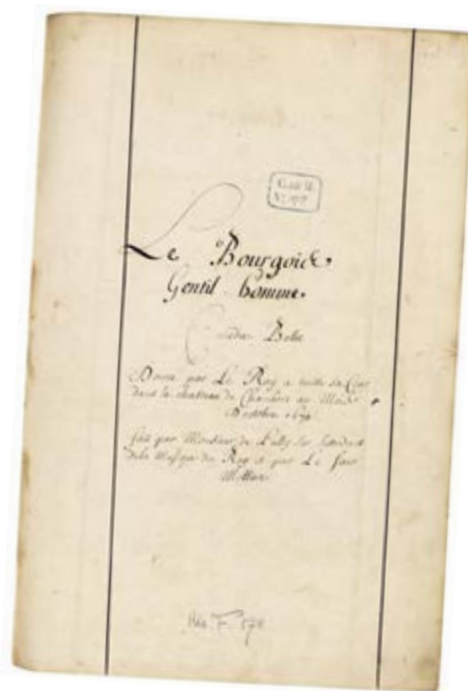 Le Bourgoice
Gentil-homme.
Comedie Balet
Donné par Le Roy a toutte Sa Cour
dans le chasteau de Chambort au Mois
D'octobre 1670
fait par Monsieur de Lully Sur Intendant
dela Musique du Roy et par Le Sieur
Molliere
Rés. F. 578